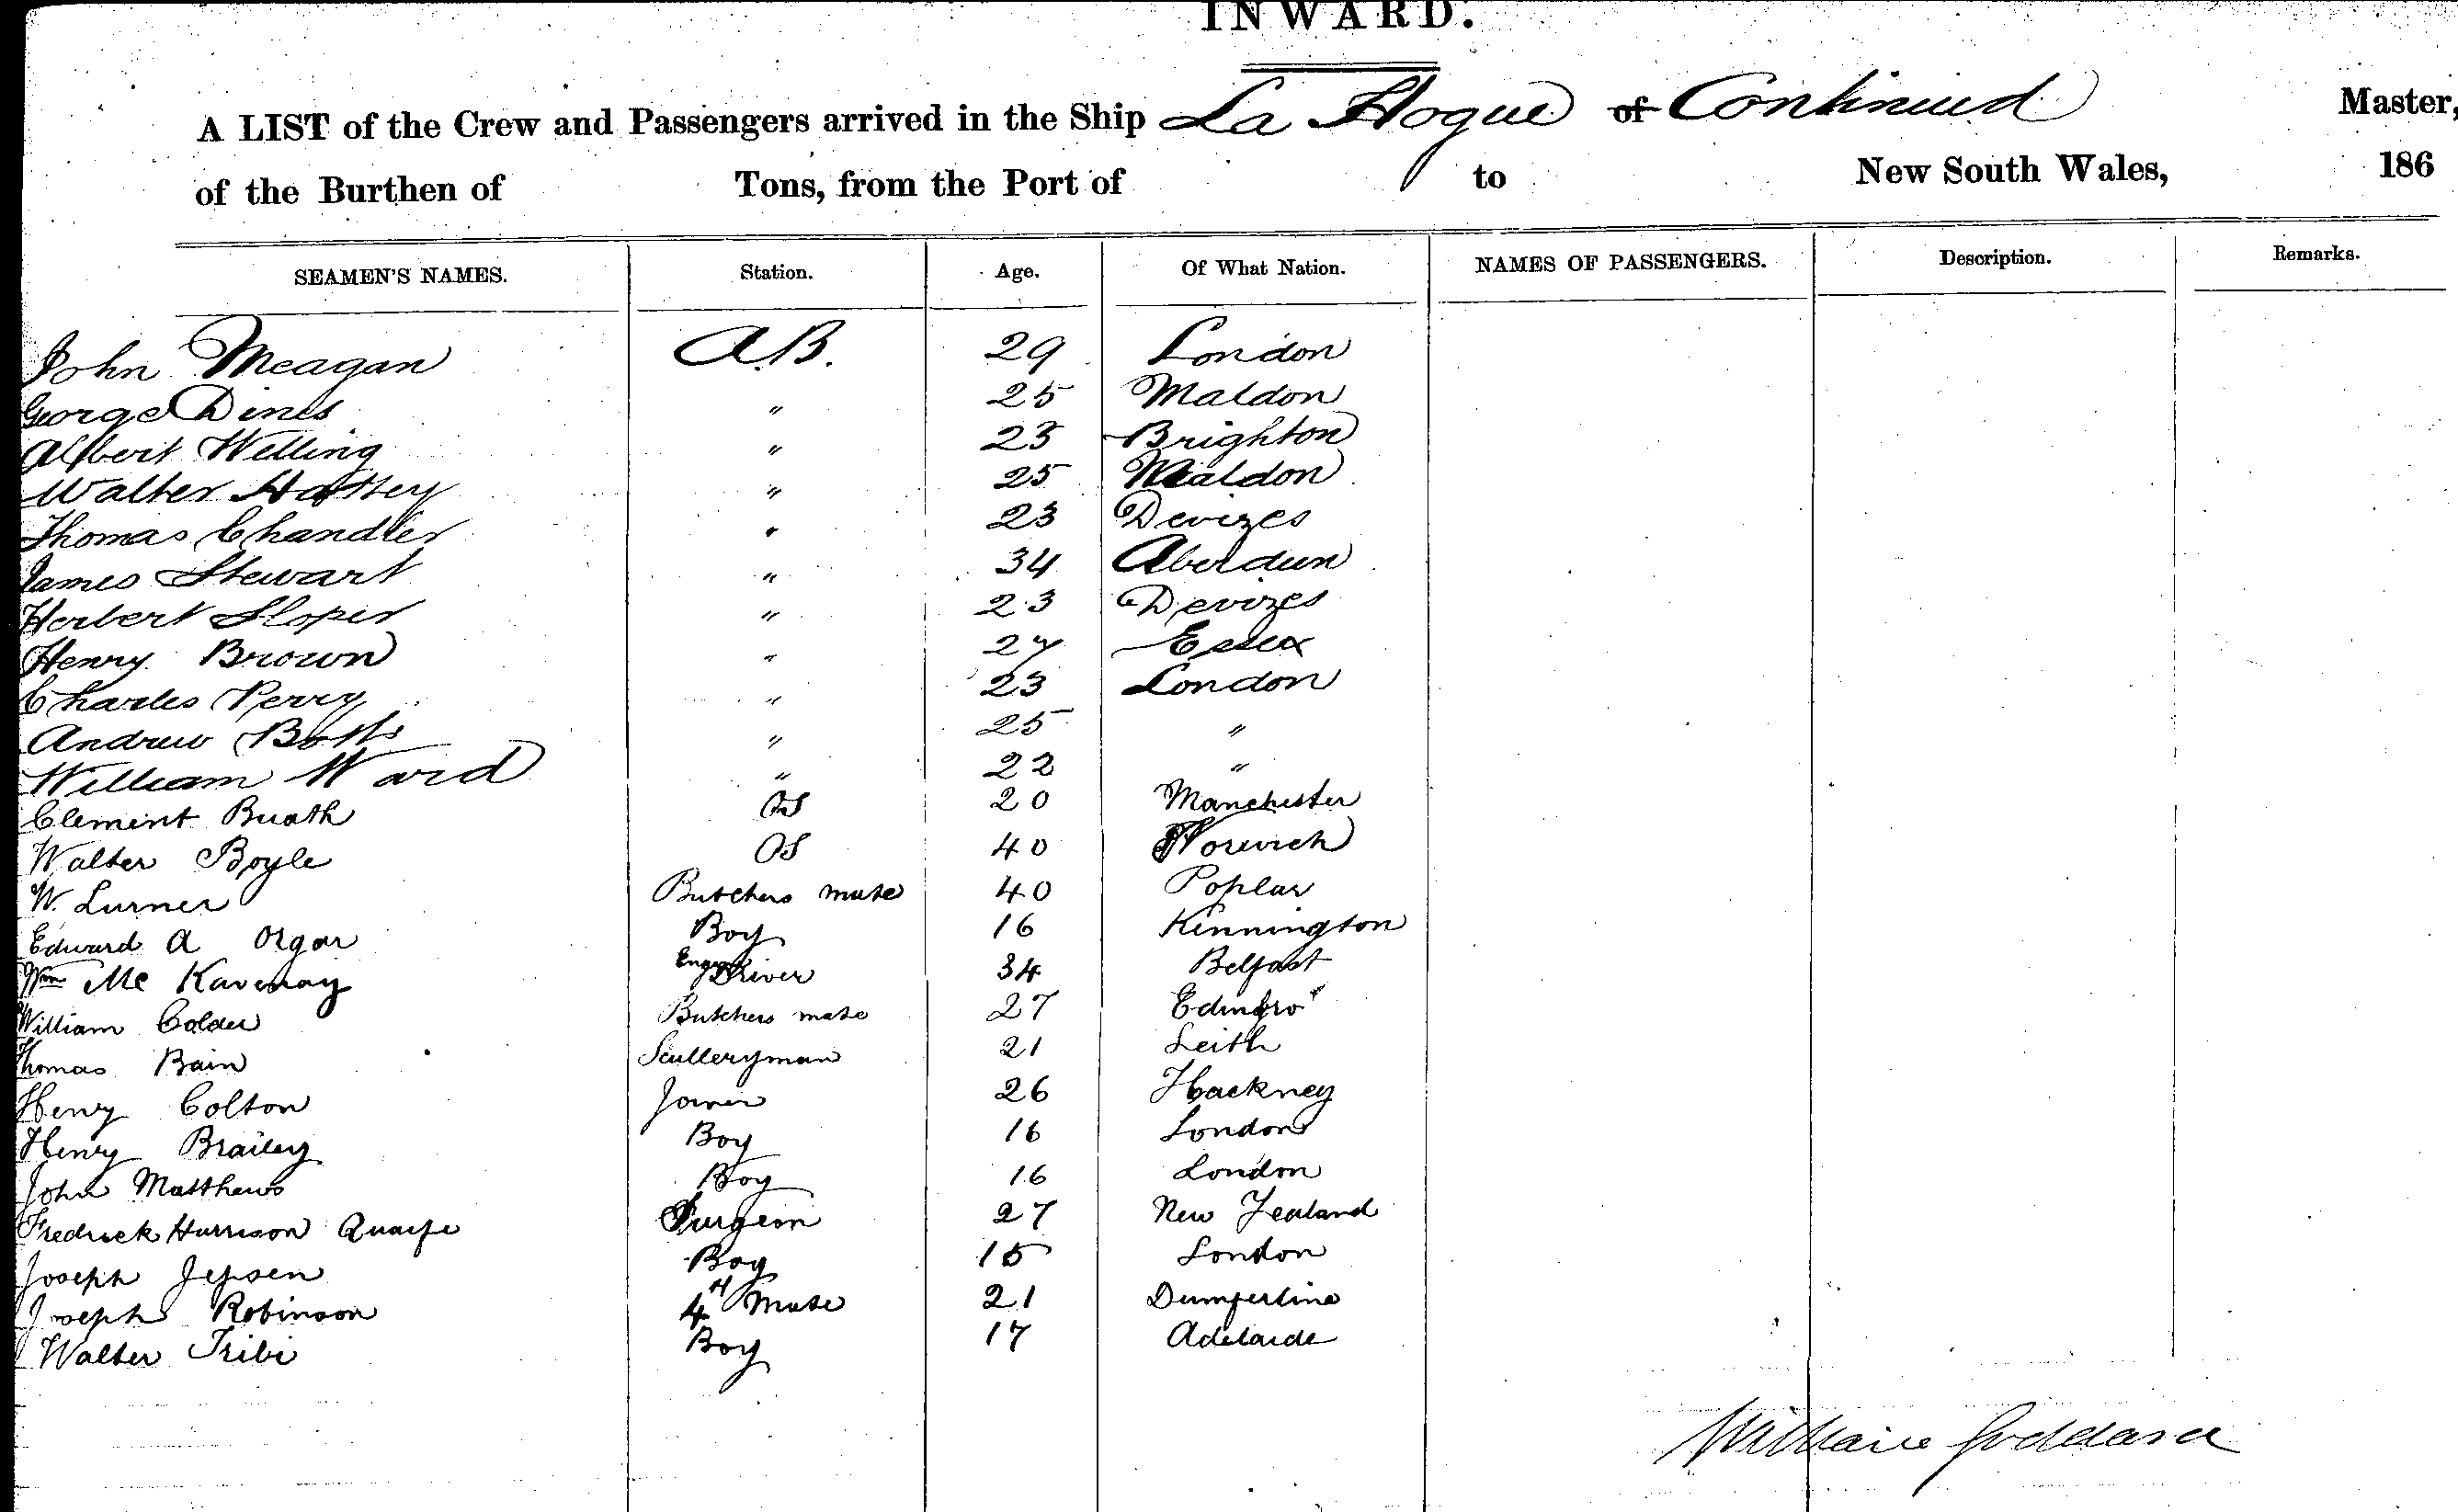 INWARD.
A LIST of the Crew and Passengers arrived in the Ship La Hogue of Continued Master,
of the Burthen of Tons, from the Port of to New South Wales, 186
SEAMEN'S NAMES. Station. Age. Of What Nation. NAMES OF PASSENGERS. Description. Remarks.
John Meagan A.B. 29 London
George Dines " 25 Maldon
Albert Welling " 23 Brighton
Walter " 25 Maldon
Thomas Chandler " 23 Devizes
James Stewart " 34 Aberdeen
Herbert Sloper " 23 Devizes
Henry Brown " 27 Essex
Charles Perry " 23 London
Andrew Botts " 25 "
William Ward " 22 "
Clement OS 20 Manchester
Walter Boyle OS 40 Norwich
W. Butchers mate 40 Poplar
Edward A Orgar Boy 16 Kennington
Wm Mc Driver 34 Belfast
William Calder Butchers mate 27 Edinbro'
Thomas Bain Sculleryman 21 Leith
Henry Colton Joiner 26 Hackney
Henry Brailey Boy 16 London
John Matthews Boy 16 London
Fredrick Harrison Quaife Surgeon 27 New Zealand
Joseph Jepsen Boy 15 London
Joseph Robinson 4 Mate 21 Dumferline
Walter Tribe Boy 17 Adelaide
William Goddard